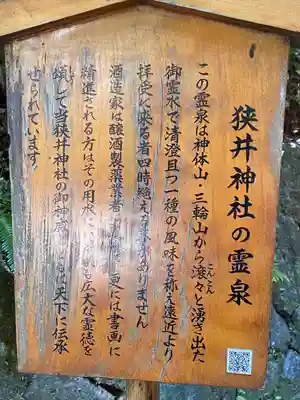 狭井神社の霊泉
この霊泉は神体山・三輪山から滾々と湧き出た
こんこん
御霊水で清澄且つ一種の風味を称え遠近より
拝受に来る者四時絶え ありません
酒造家は醸酒製薬業者 更には書画に
精進される方はその用水に 広大な霊徳を
頌して当狭井神社の御神 天下に伝承
せられています。